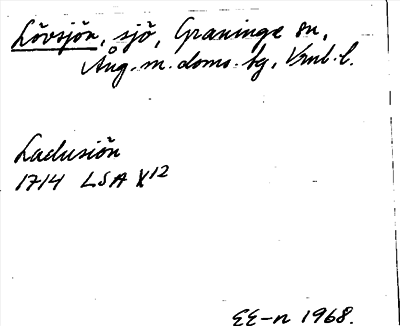 Lövsjön, sjö, Graninge sn,
Ång. m. doms. tg, Vnl. l.
Ladusiön
1714 LSA X12
EE-n 1968.